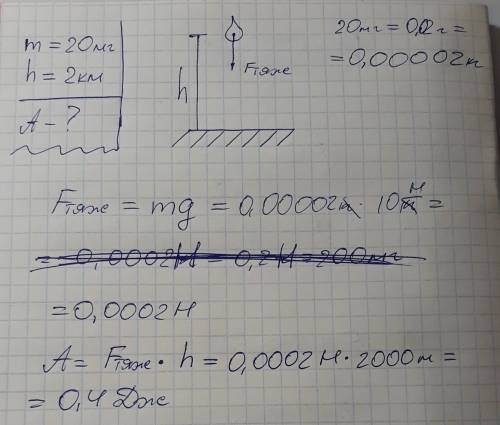 m = 20мг
h = 2км
A - ?
h
Fтяже
20мг = 0,02г =
= 0,00002кг
Fтяже = mg = 0,00002кг · 10 Н/кг =
= 0,0002Н = 0,2Н = 200мг
= 0,0002Н
A = Fтяже · h = 0,0002Н · 2000м =
= 0,4 Дже